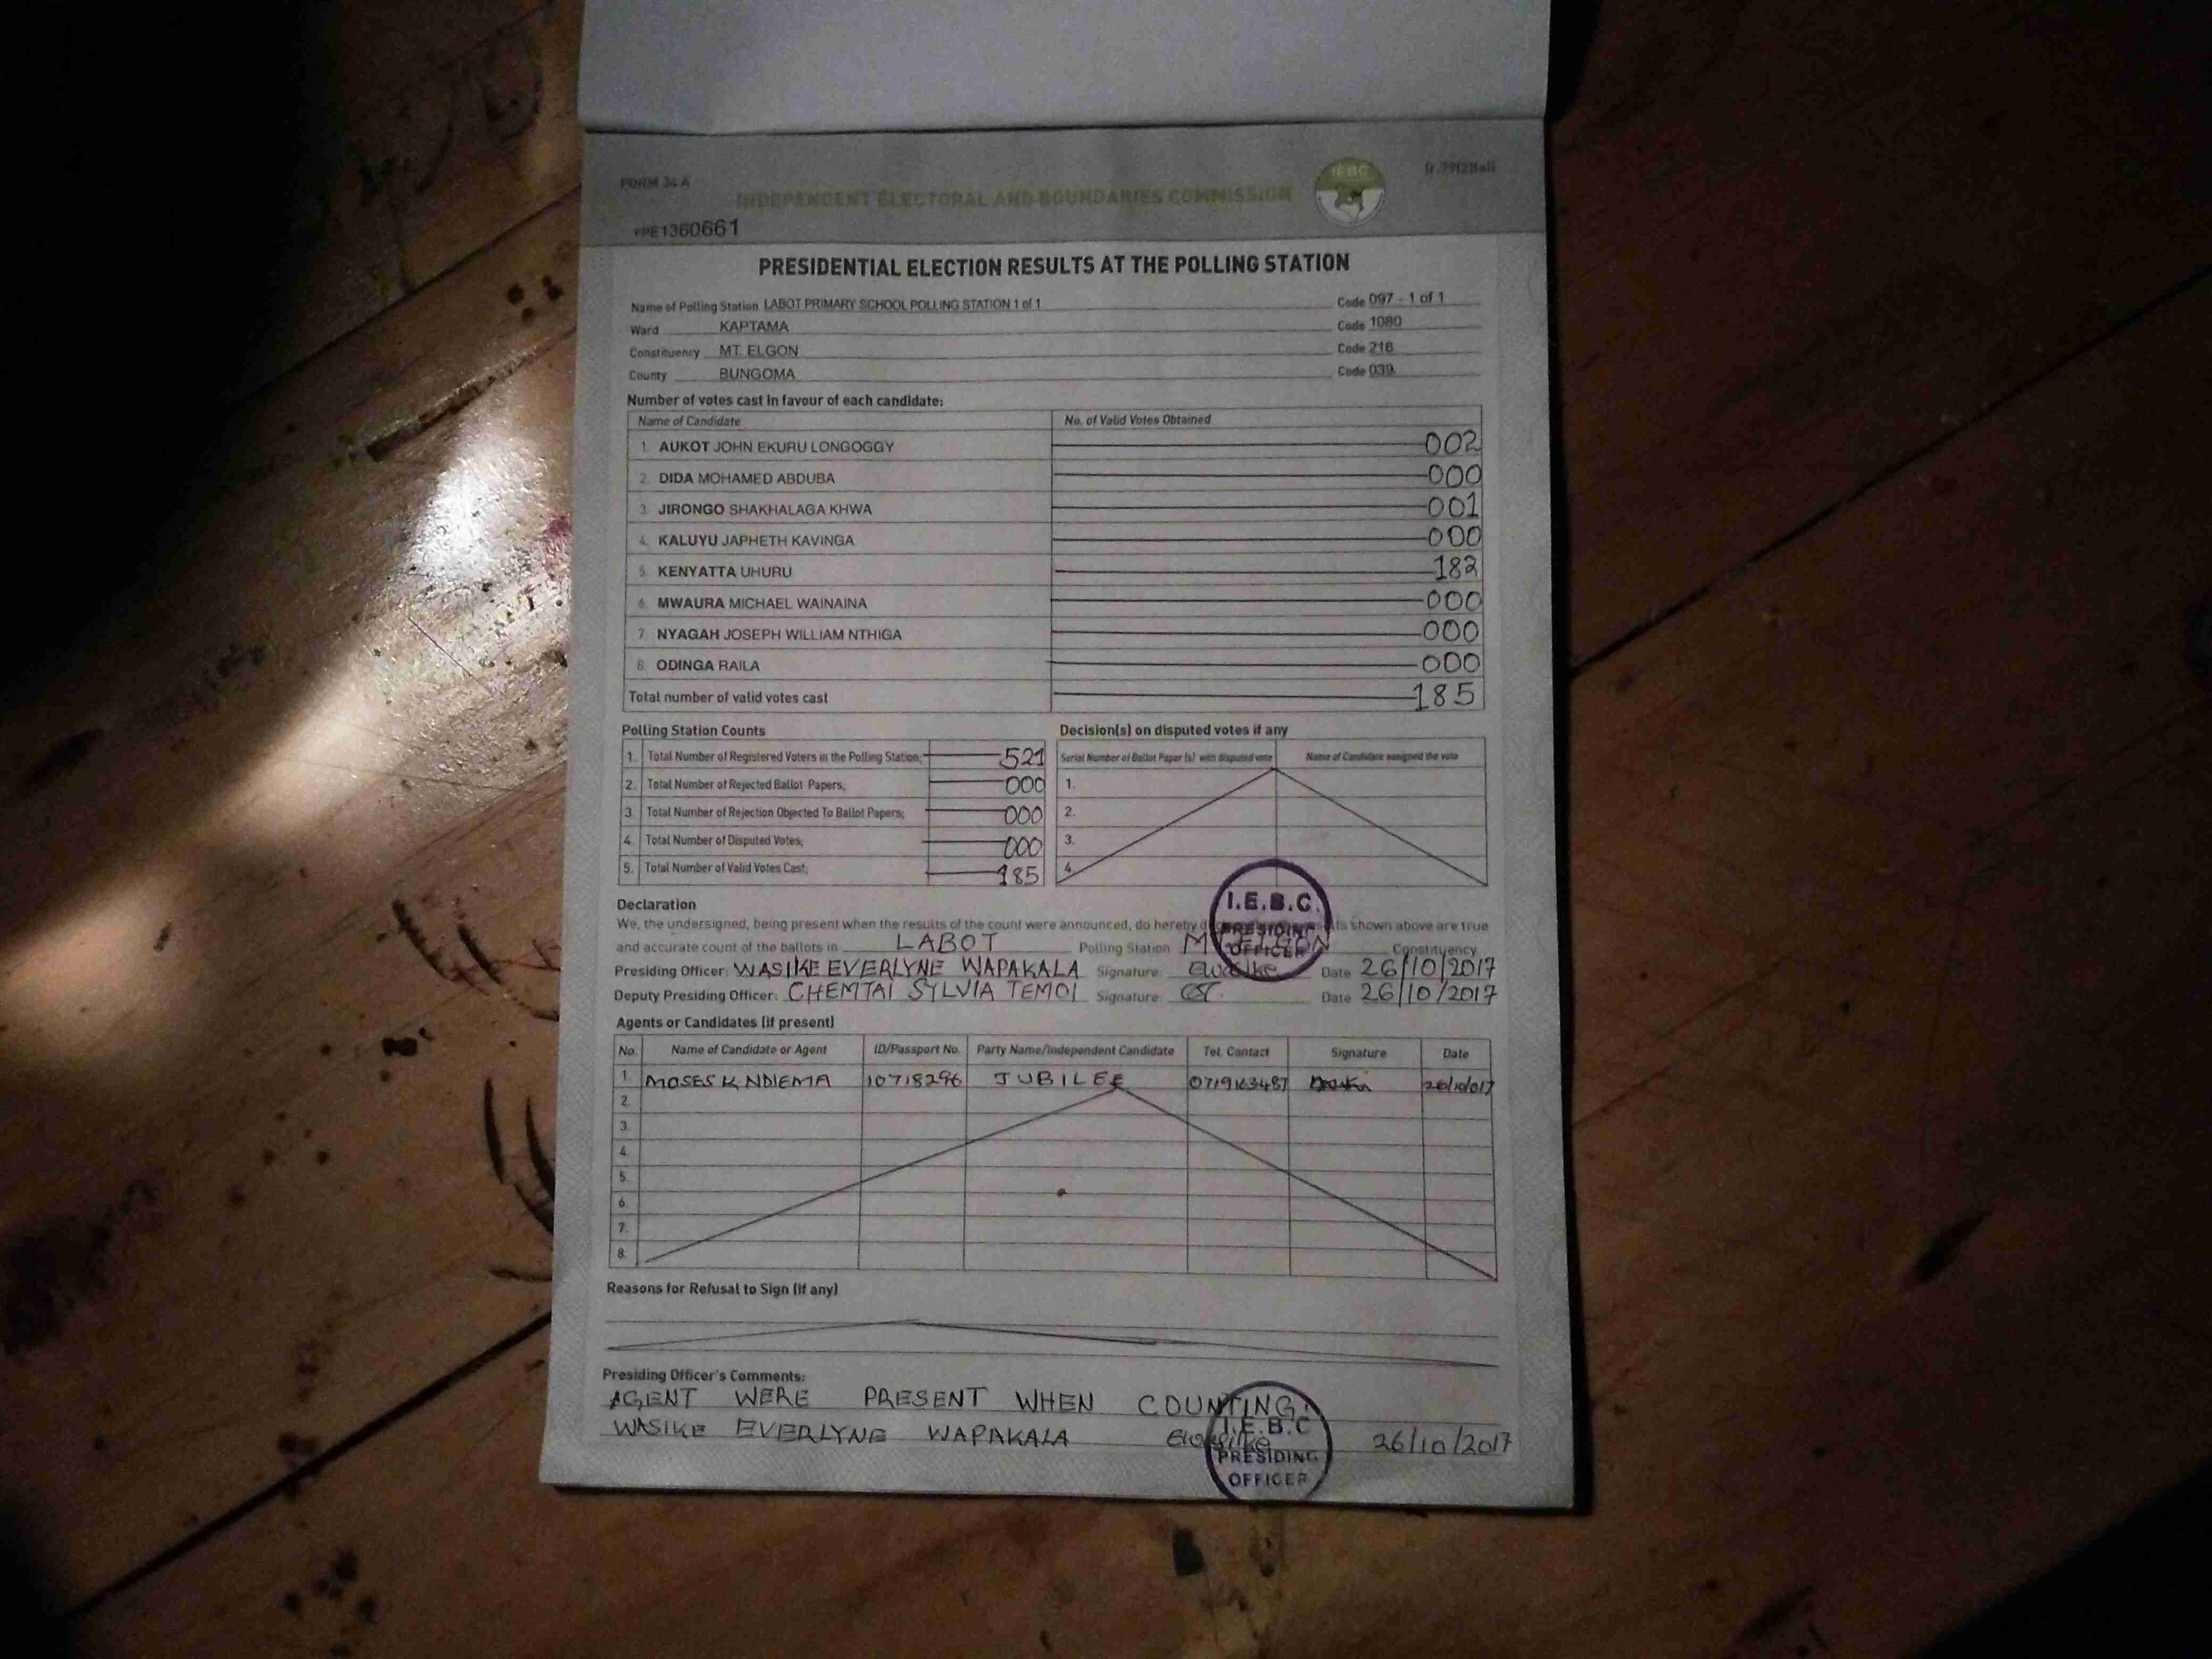 FORM 34 A
(r.79(2)(a))
INDEPENDENT ELECTORAL AND BOUNDARIES COMMISSION
IEBC
#PE1360661
PRESIDENTIAL ELECTION RESULTS AT THE POLLING STATION
Name of Polling Station LABOT PRIMARY SCHOOL POLLING STATION 1 of 1 Code 097 - 1 of 1
Ward KAPTAMA Code 1080
Constituency MT. ELGON Code 216
County BUNGOMA Code 039
Number of votes cast in favour of each candidate:
Name of Candidate No. of Valid Votes Obtained
1. AUKOT JOHN EKURU LONGOGGY 002
2. DIDA MOHAMED ABDUBA 000
3. JIRONGO SHAKHALAGA KHWA 001
4. KALUYU JAPHETH KAVINGA 000
5. KENYATTA UHURU 182
6. MWAURA MICHAEL WAINAINA 000
7. NYAGAH JOSEPH WILLIAM NTHIGA 000
8. ODINGA RAILA 000
Total number of valid votes cast 185
Polling Station Counts
1. Total Number of Registered Voters in the Polling Station; 521
2. Total Number of Rejected Ballot Papers; 000
3. Total Number of Rejection Objected To Ballot Papers; 000
4. Total Number of Disputed Votes; 000
5. Total Number of Valid Votes Cast; 185
Decision(s) on disputed votes if any
Serial Number of Ballot Paper (s) with disputed vote Name of Candidate assigned the vote
1.
2.
3.
4.
Declaration
We, the undersigned, being present when the results of the count were announced, do hereby shown above are true
and accurate count of the ballots in LABOT Polling Station Constituency
I.E.B.C.
PRESIDING
OFFICER
Presiding Officer: WASIKE EVERLYNE WAPAKALA Signature: Ewasike Date 26/10/2017
Deputy Presiding Officer: CHEMTAI SYLVIA TEMOI Signature: Date 26/10/2017
Agents or Candidates (if present)
No. Name of Candidate or Agent ID/Passport No. Party Name/Independent Candidate Tel. Contact Signature Date
1. MOSES K NDIEMA 10718296 JUBILEE 26/10/017
2.
3.
4.
5.
6.
7.
8.
Reasons for Refusal to Sign (if any)
Presiding Officer's Comments:
AGENT WERE PRESENT WHEN COUNTING.
WASIKE EVERLYNE WAPAKALA Ewasike 26/10/2017
I.E.B.C
PRESIDING
OFFICER